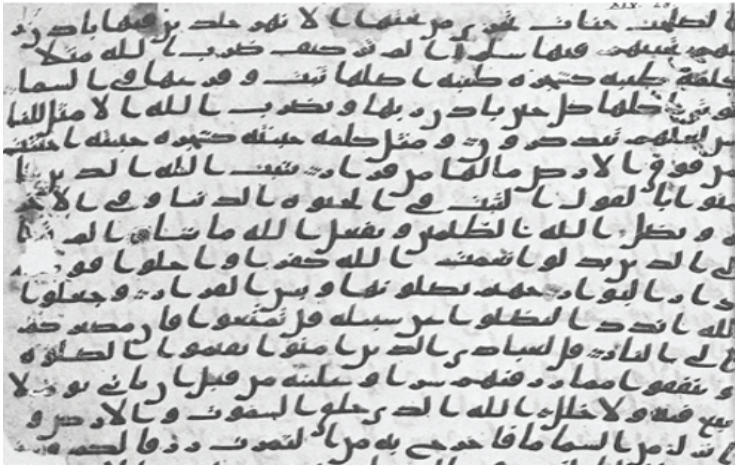 XIV. 28
الصلحت جنات تجرى من تحتها الانهر خلدين فيها باذن ر
بهم تحيتهم فيها سلم الم تر كيف ضرب الله مثلا
كلمة طيبه كشجره طيبه اصلها ثبت و فرعها فى السما
توتى اكلها كل حين باذن ربها و يضرب الله الامثل للنا
س لعلهم يتذكرون و مثل كلمه خبيثه كشجره خبيثه اجتثت
من فوق الارض ما لها من قرار يثبت الله الذين ا
منوا بالقول الثبت فى الحيوه الدنيا و فى الاخر
ه و يضل الله الظلمين و يفعل الله ما يشا الم تر ا
لى الذين بدلوا نعمت الله كفرا و احلوا قو
دار البوار جهنم يصلونها و بيس القرار و جعلوا
لله اندادا ليضلوا عن سبيله قل تمتعوا فان مصيركم
الى النار قل لعبادى الذين امنوا يقيموا الصلوه
و ينفقوا مما رزقنهم سرا و علنيه من قبل ان ياتى يوم لا
بيع فيه و لا خلل الله الذى خلق السموت و الارض و
انزل من السما ما فاخرج به من الثمرت رزقا لكم و